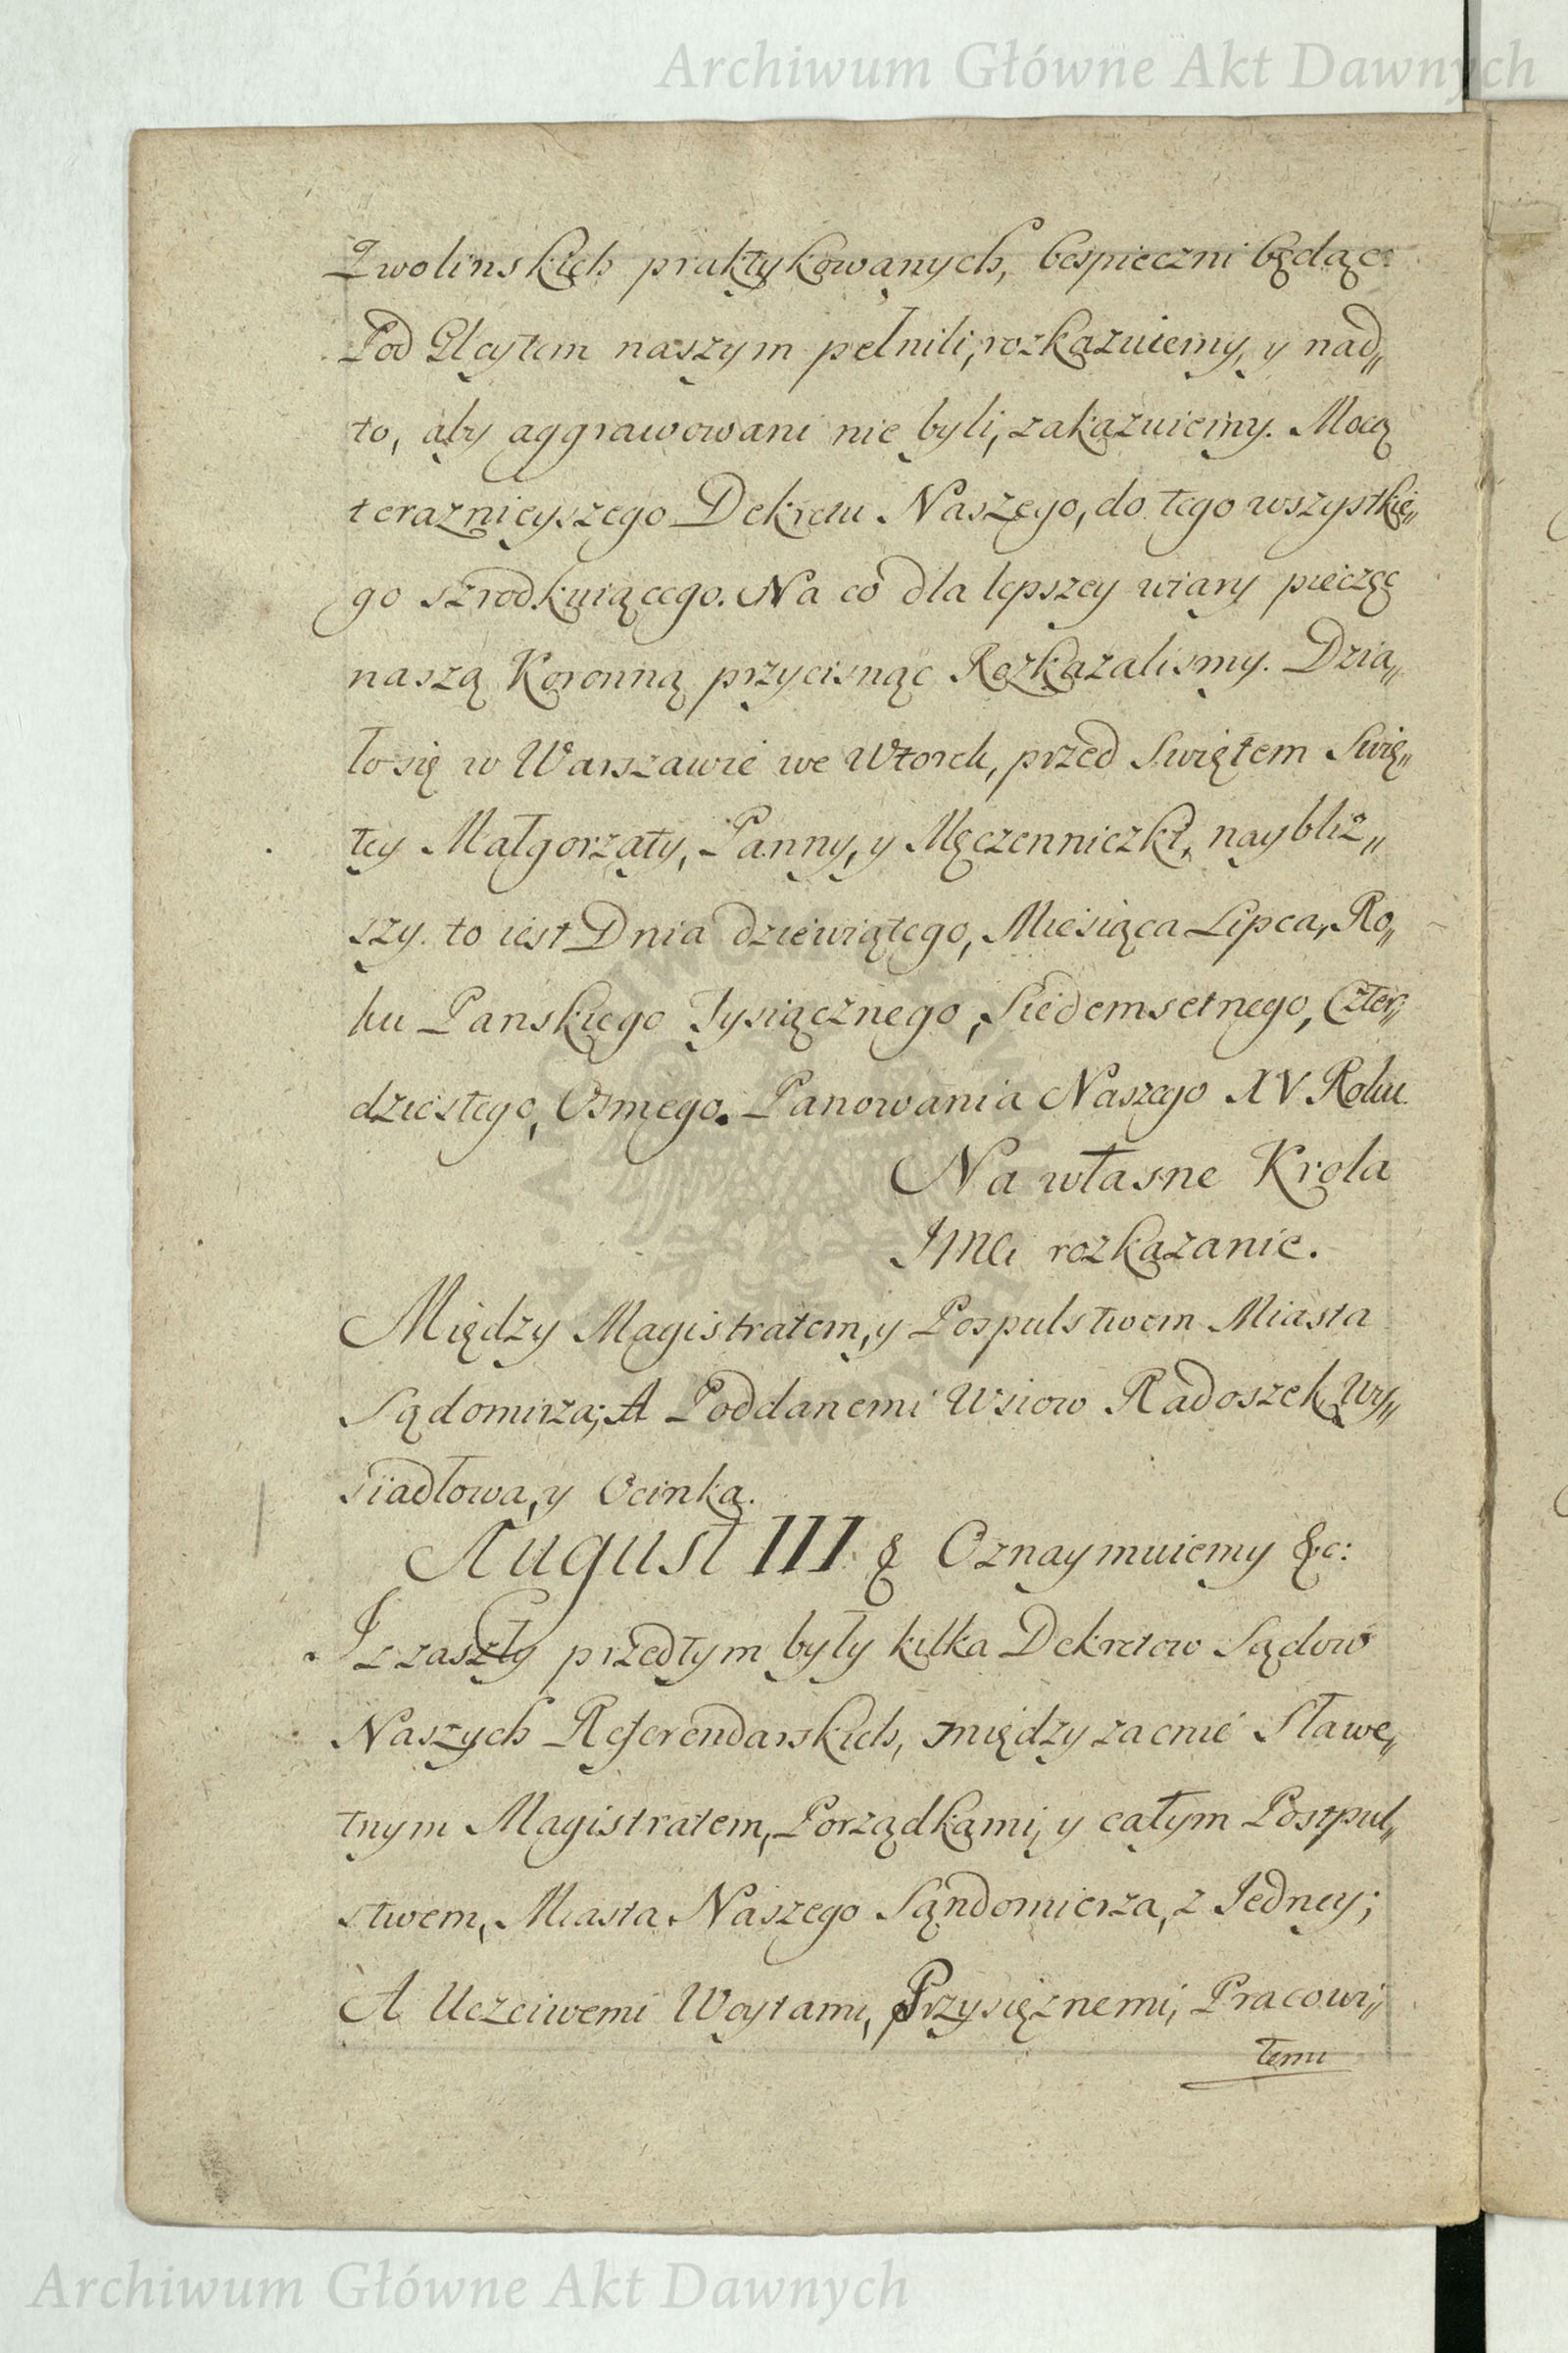 Archiwum Główne Akt Dawnych
Zwolinskich praktykowanych, bespieczni będąc
Pod Gleytem naszym pełnili, rozkazuiemy, y nad„
to, aby aggrawowani nie byli, zakazuiemy. Mocą
teraznieyszego Dekretu Naszego, do tego wszystkie„
go szrodkuiącego. Na co dla lepszey wiary pieczęć
naszą Koronną przycisnąc Rozkazalismy. Dzia„
ło się w Warszawie we Wtorek, przed Swiętem Swię„
tey Małgorzaty, Panny, y Męczenniczki, naybliz„
szy. to iest Dnia dziewiątego, Miesiąca Lipca, Ro„
ku Panskiego Tysiącznego, Siedemsetnego, Czter„
dziestego, Osmego. Panowania Naszego XV Roku.
Na własne Krola
JMCi rozkazanie.
Między Magistratem, y Pospulstwem Miasta
Sądomirza; A Poddanemi Wsiow Radoszek, Wy„
siadłowa, y Ocinka.
August III & Oznaymuiemy &c:
Iz zaszły przedtym były kilka Dekretow Sądow
Naszych Referendarskich, między zacnie Sławe„
tnym Magistratem, Porządkami, y całym Postpul„
stwem, Miasta Naszego Sąndomierza, z Jedney;
A Uczciwemi Woytami, Przysięznemi, Pracowi„
temi
Archiwum Główne Akt Dawnych